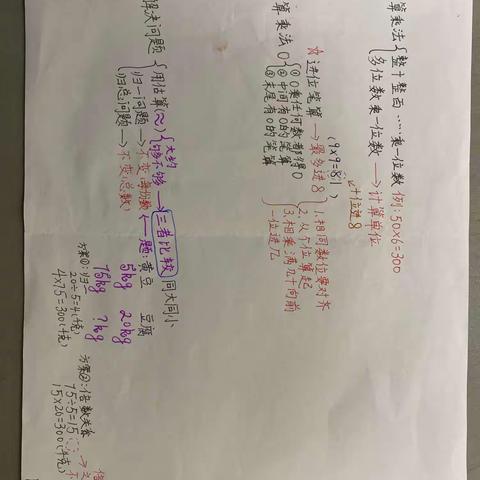 算乘法
整十整百……乘一位数 例:50×6=300
多位数乘一位数→计算单位
☆进位笔算→最多进8
(9×9=81)
十位进8
1.相同数位要对齐
2.从个位算起
3.相乘满几十向前
一位进几
算乘法0
①0乘任何数都得0
②中间有0的笔算
③末尾有0的笔算
解决问题
用估算(≈)
大约
够不够→三者比较 同大同小
归一问题→不变(每份数)
归总问题→不变(总数)
一题:黄豆 豆腐
5kg 20kg
75kg ?kg
方案①:归一
20÷5=4(千克)
4×75=300(千克)
方案②:倍数关系
75÷5=15
15×20=300(千克)